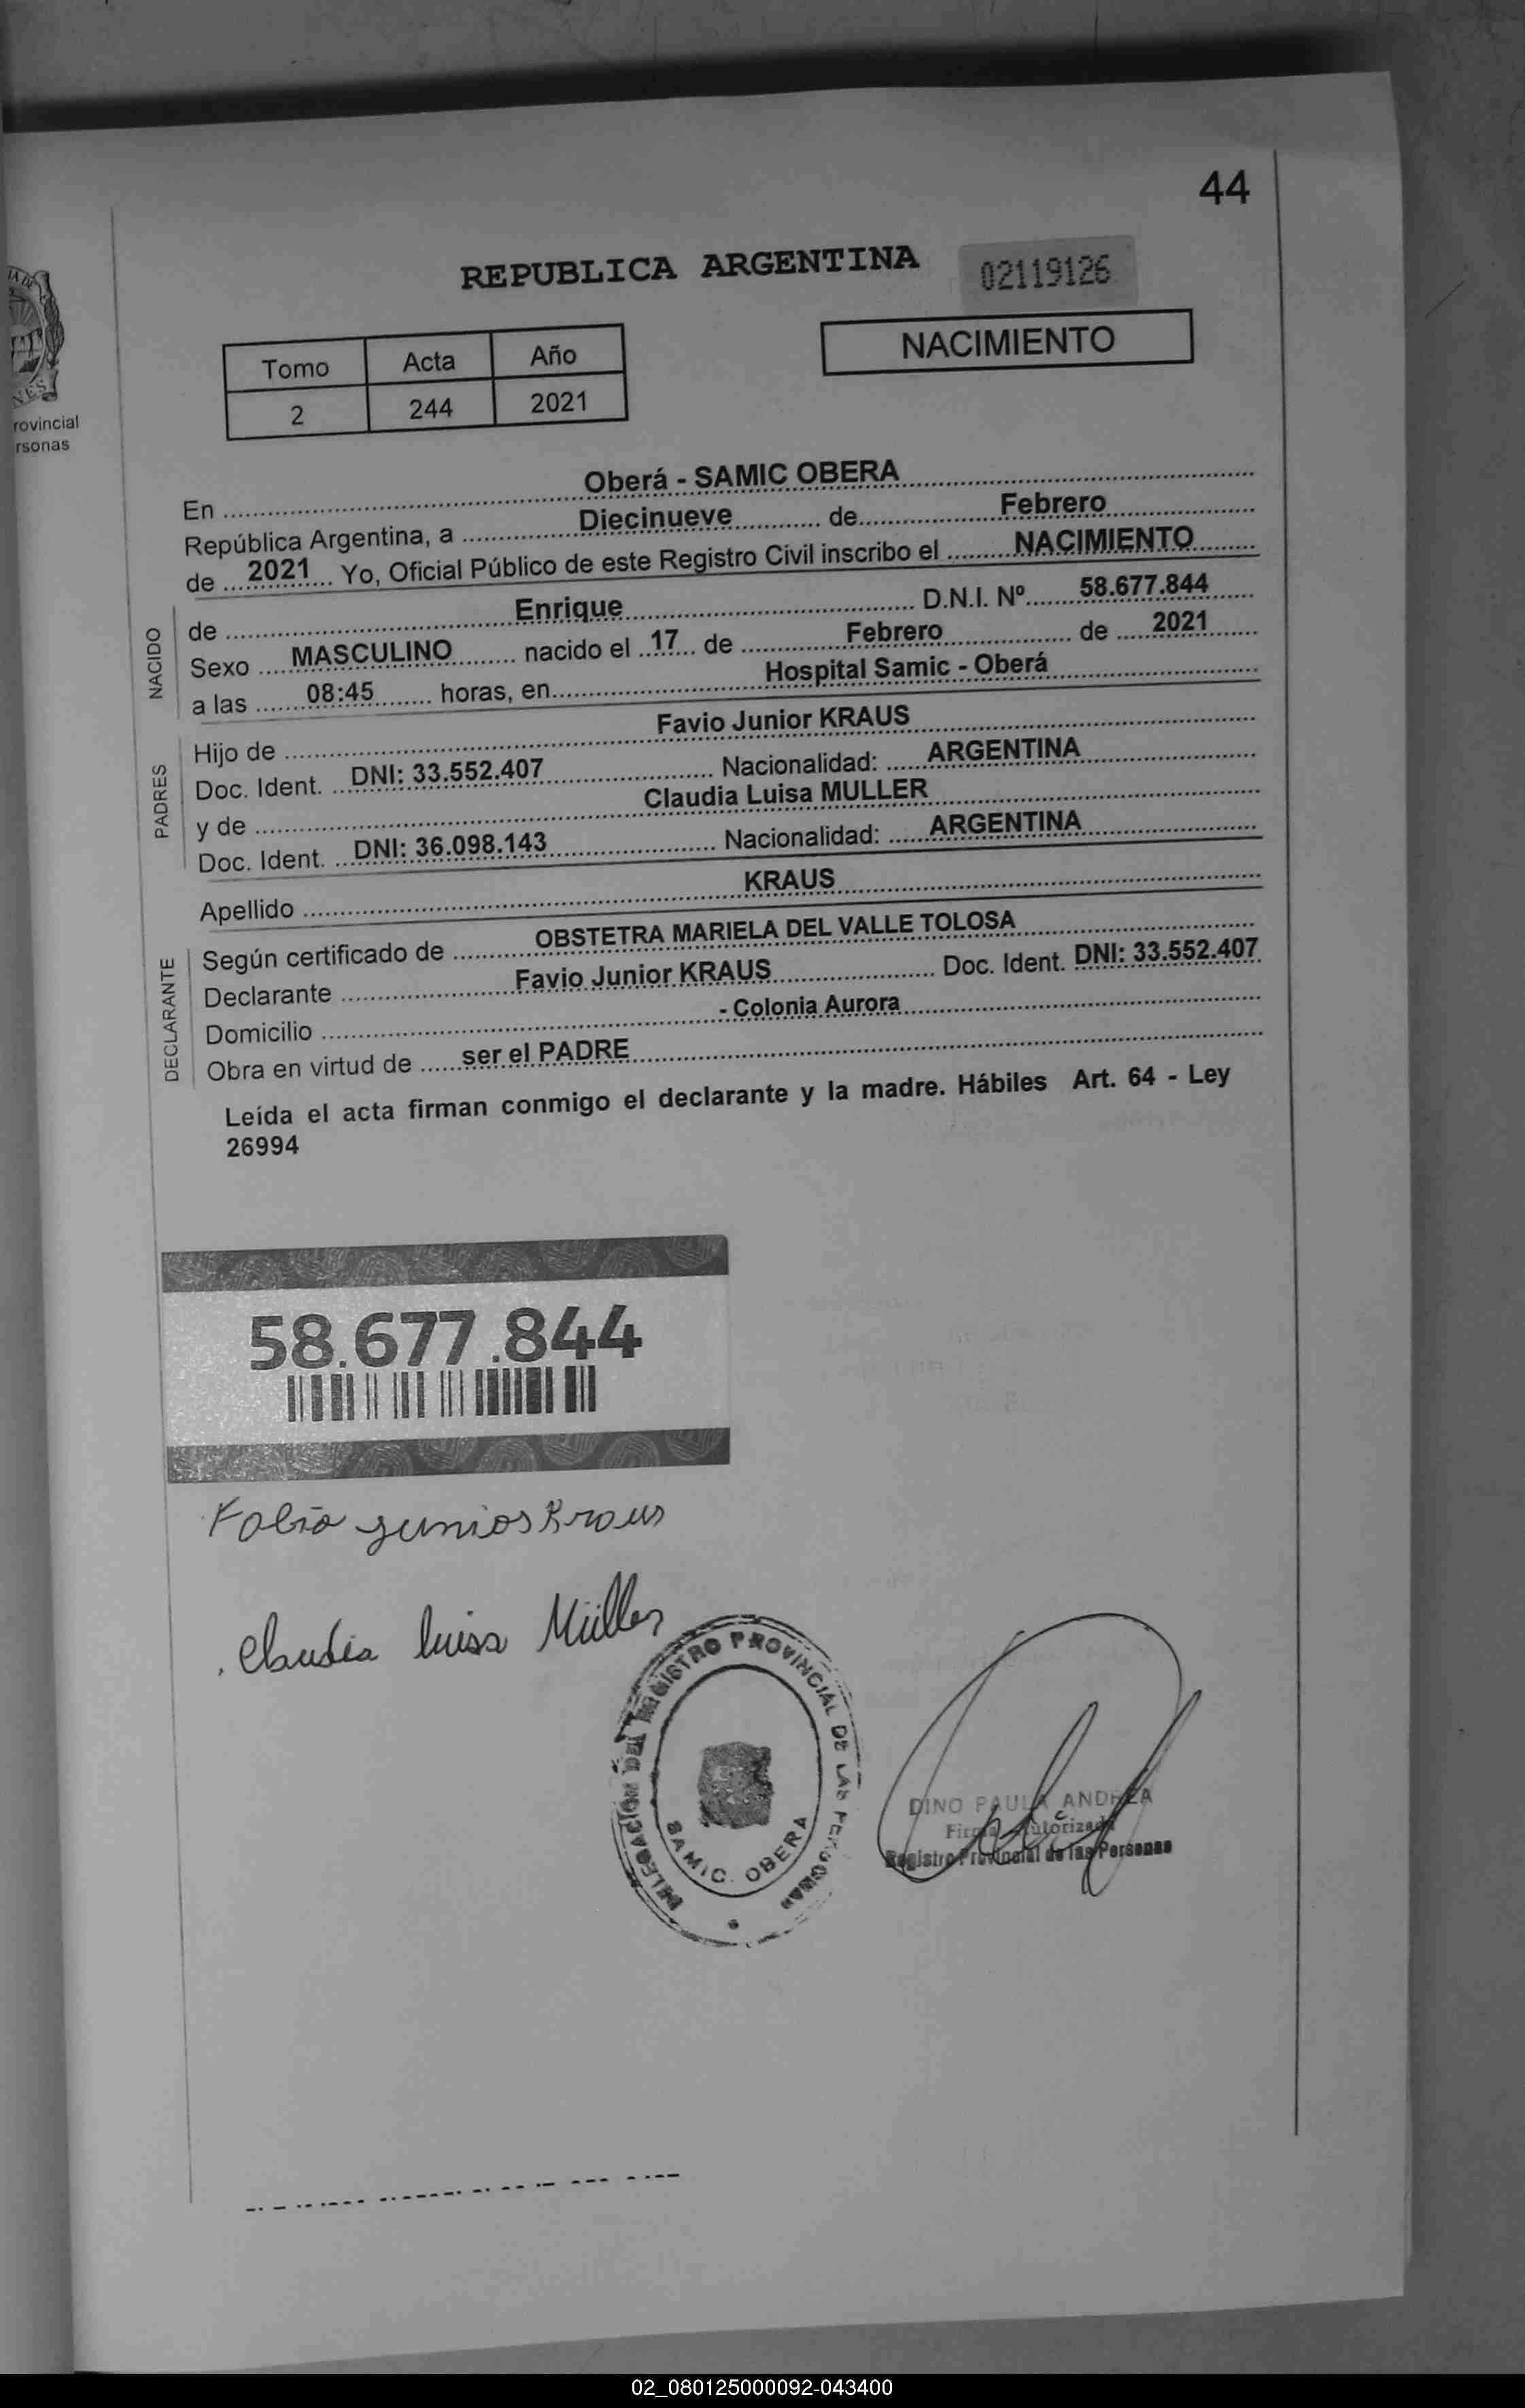 44
REPUBLICA ARGENTINA
02119126
NACIMIENTO
Tomo Acta Año
2 244 2021
rovincial
rsonas
En Oberá - SAMIC OBERA
República Argentina, a Diecinueve de Febrero
de 2021 Yo, Oficial Público de este Registro Civil inscribo el NACIMIENTO
NACIDO
de Enrique D.N.I. Nº 58.677.844
Sexo MASCULINO nacido el 17 de Febrero de 2021
a las 08:45 horas, en Hospital Samic - Oberá
PADRES
Hijo de Favio Junior KRAUS
Doc. Ident. DNI: 33.552.407 Nacionalidad: ARGENTINA
y de Claudia Luisa MULLER
Doc. Ident. DNI: 36.098.143 Nacionalidad: ARGENTINA
Apellido KRAUS
DECLARANTE
Según certificado de OBSTETRA MARIELA DEL VALLE TOLOSA
Declarante Favio Junior KRAUS Doc. Ident. DNI: 33.552.407
Domicilio - Colonia Aurora
Obra en virtud de ser el PADRE
Leída el acta firman conmigo el declarante y la madre. Hábiles Art. 64 - Ley
26994
58.677.844
Fabio junios Kraus
Claudia luisa Müller
DELEGACION DEL REGISTRO PROVINCIAL DE LAS PERSONAS
SAMIC. OBERA
DINO PAULA ANDREA
Firma Autorizada
Registro Provincial de las Personas
02_080125000092-043400